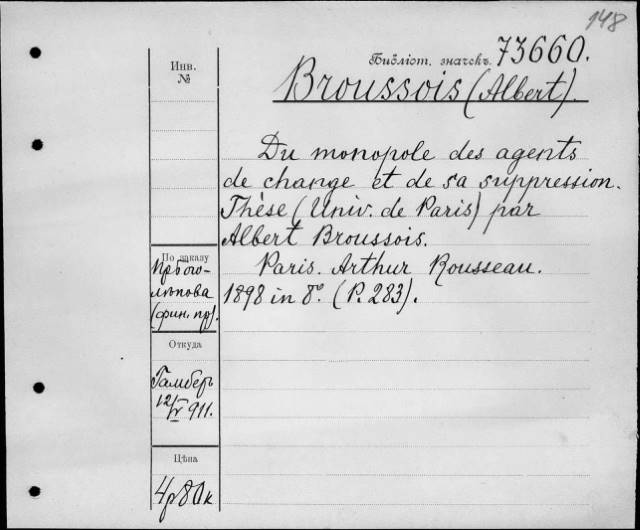 148
Библіот. значекъ 73660.
Инв.
№
Broussois (Albert).
Du monopole des agents
de change et de sa suppression.
Thèse (Univ. de Paris) par
Albert Broussois.
Paris. Arthur Rousseau.
1898 in 8º. (P. 283).
По заказу
(фин. пр).
Откуда
Гамберъ
12/IV 911.
Цѣна
4р80к